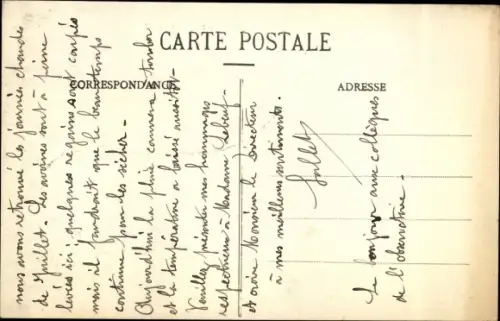 CARTE POSTALE
CORRESPONDANCE
ADRESSE
nous avons retrouvé les journées chaudes
de Juillet. Les avoines sont à peine
levées ici; quelques regains sont coupés
mais il faudrait que le beau temps
continue pour les sécher.
Aujourd'hui la pluie commence tomber
et la température a baissé aussitôt.
Veuillez présenter mes hommages
respectueux à Madame
et croire Monsieur le Directeur
à mes meilleurs sentiments.
Le bonjour aux collègues
de l'observatoire.